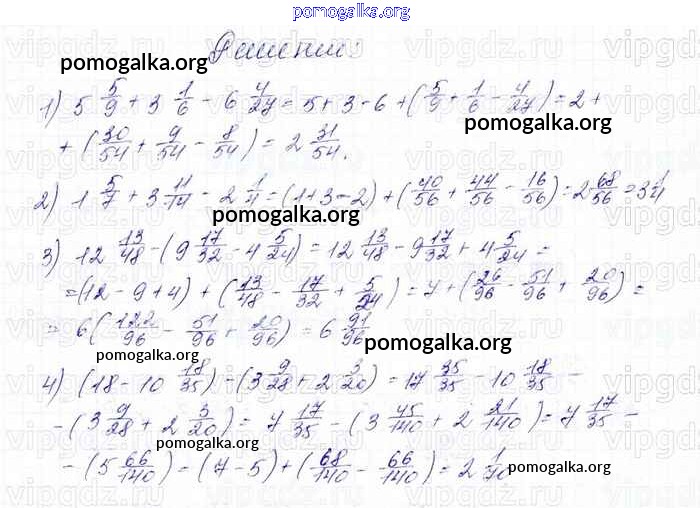 pomogalka.org
Решение:
pomogalka.org
1) 5 5/9 + 3 1/6 - 6 4/27 = 5 + 3 - 6 + (5/9 + 1/6 - 4/27) = 2 +
pomogalka.org
+ (30/54 + 9/54 - 8/54) = 2 31/54.
2) 1 5/7 + 3 11/14 - 2 1/4 = (1+3-2) + (40/56 + 44/56 - 16/56) = 2 68/56 = 3 1/4
pomogalka.org
3) 12 13/48 - (9 17/32 - 4 5/24) = 12 13/48 - 9 17/32 + 4 5/24 =
= (12 - 9 + 4) + (13/48 - 17/32 + 5/24) = 7 + (26/96 - 51/96 + 20/96) =
= 6 (122/96 - 51/96 + 20/96) = 6 91/96
pomogalka.org
pomogalka.org
4) (18 - 10 18/35) - (3 9/28 + 2 3/20) = 17 35/35 - 10 18/35 -
- (3 9/28 + 2 3/20) = 7 17/35 - (3 45/140 + 2 21/140) = 7 17/35 -
pomogalka.org
- (5 66/140) = (7 - 5) + (68/140 - 66/140) = 2 1/70
pomogalka.org